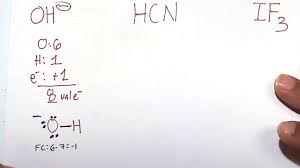 OH⁻ HCN IF₃
O: 6
H: 1
e⁻: +1
8 val e⁻
⁻ :Ö̤–H
FC: 6-7=-1